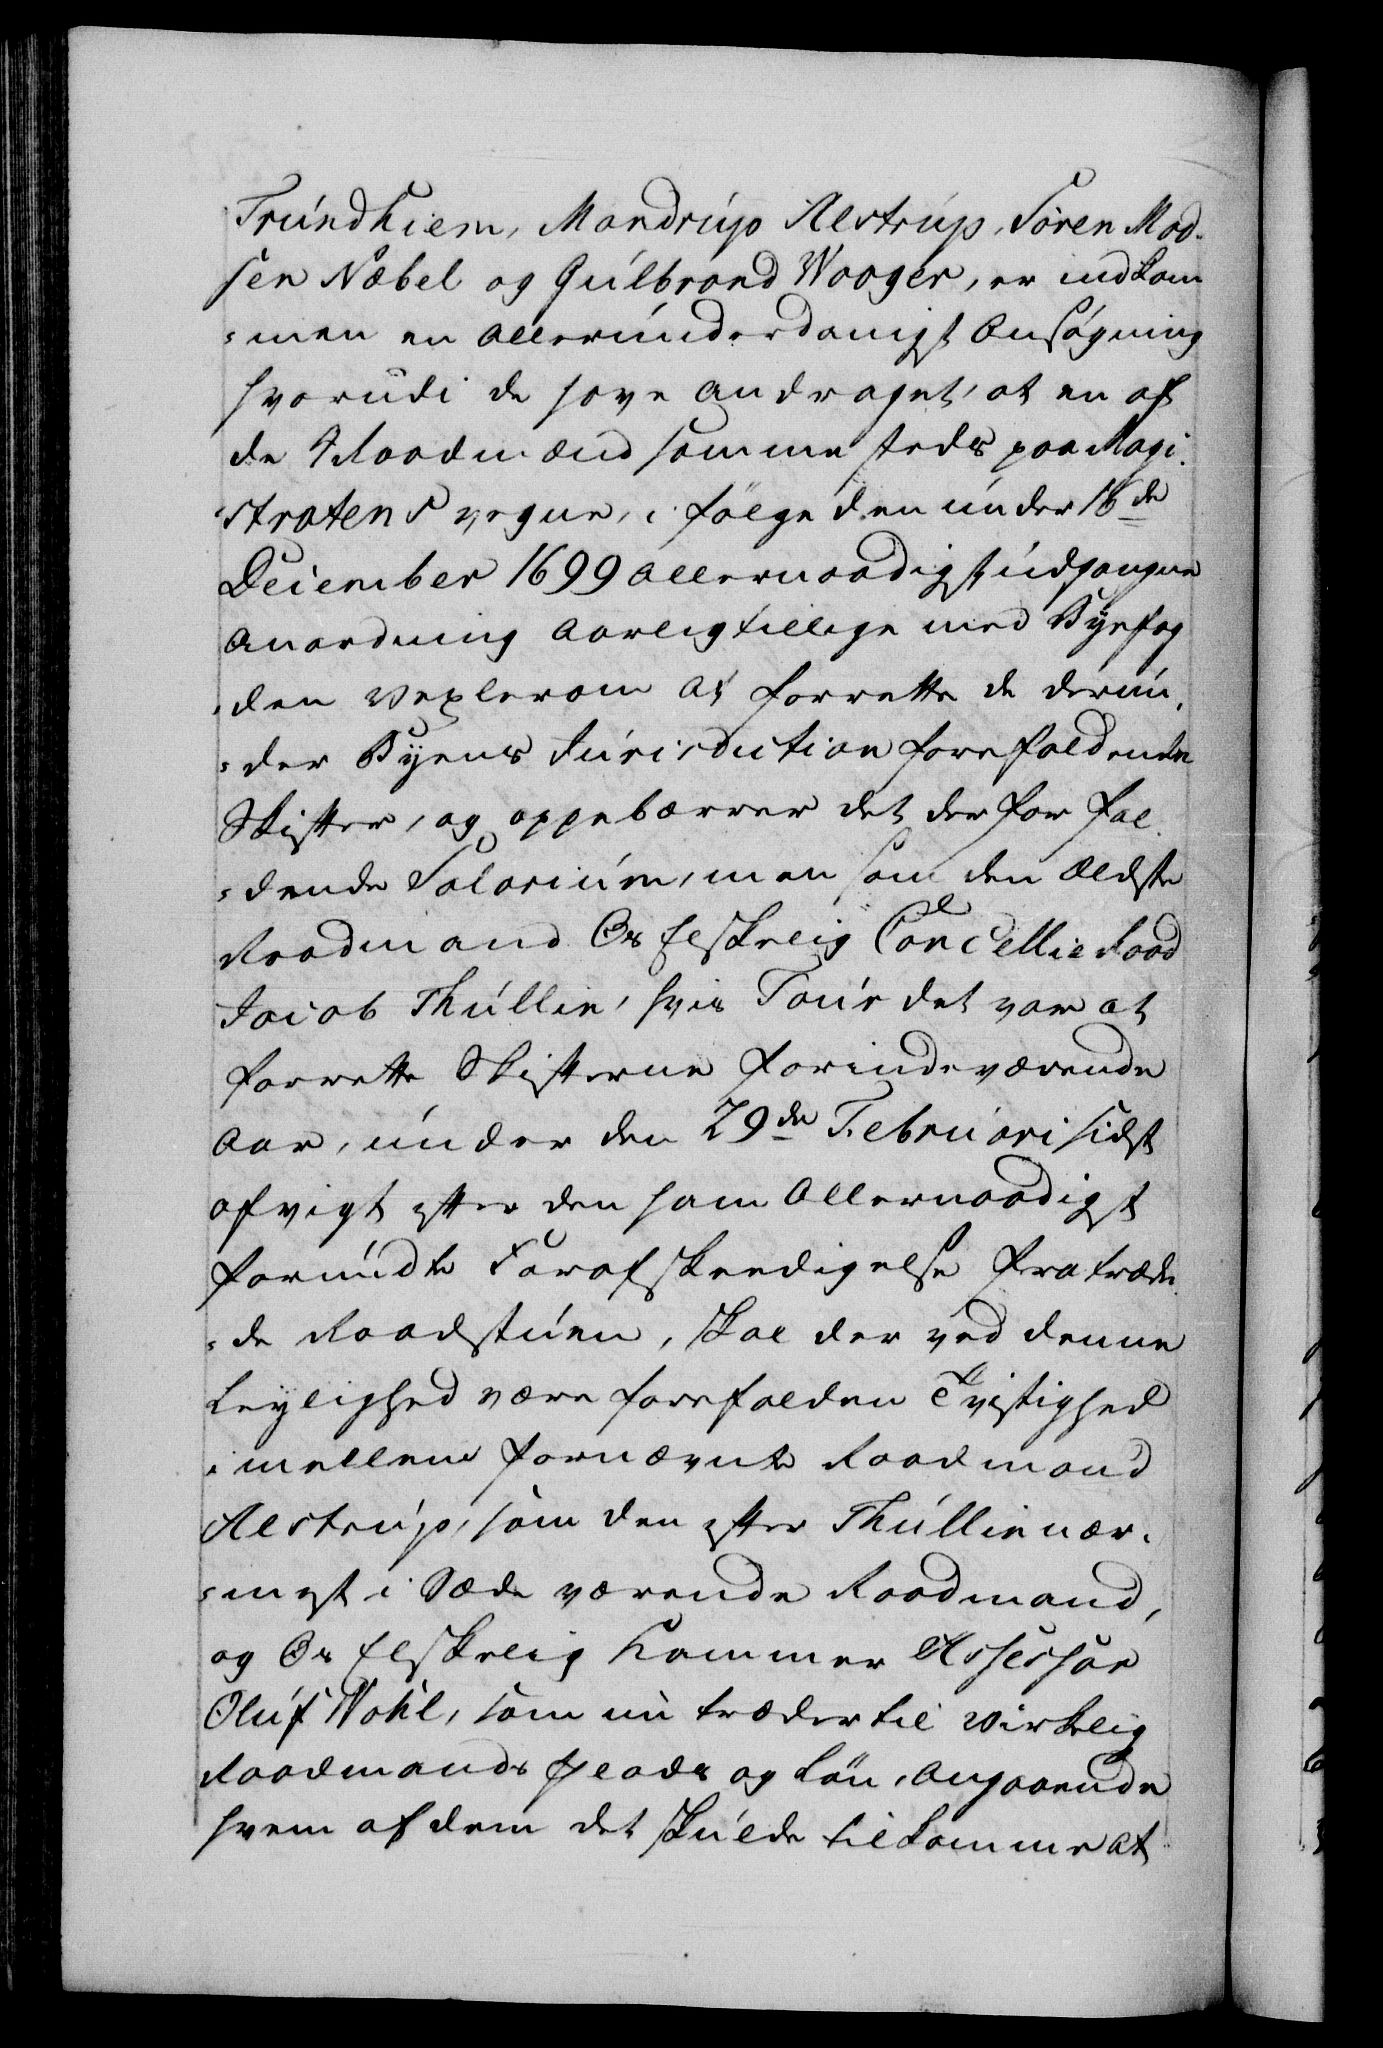 Trundhiem, Mandrup Alstrup, Søren Mad-
sen Næbel og Gulbrand Waager, er indkom
=men en allerunderdanigst Ansøgning
hvorudi de have andraget, at en af
de Raadmænd samme steds paa Magi-
stratens vegne, i følge den under 16de
December 1699 allernaadigst udgangne
Anordning aarlig tillige med Byefog
=den vexlerom at forrette de derun-
=der Byens Jurisdiction forefaldende
Skifter, og oppebærrer det derfor fal-
=dende Salarium, men som den ældste
Raadmand Os Elskelig Cancellie Raad
Jacob Thullin, hvis Tour det var at
forrette Skifterne forindeværende
Aar, under den 29de Februari sidst
afvigt efter den ham allernaadigst
forundte Forafskeedigelse fratræd-
=de Raadstuen, skal der ved denne
Leylighed være forefalden Tvistighed
imellem fornævnte Raadmand
Alstrup, som den efter Thullin nær-
=mest i Sæde værende Raadmand,
og Os Elskelig Kammer Assessor
Oluf Wohl, som nu træder til virkelig
Raadmands Plads og Løn, angaaende
hvem af dem det skulde tilkomme at